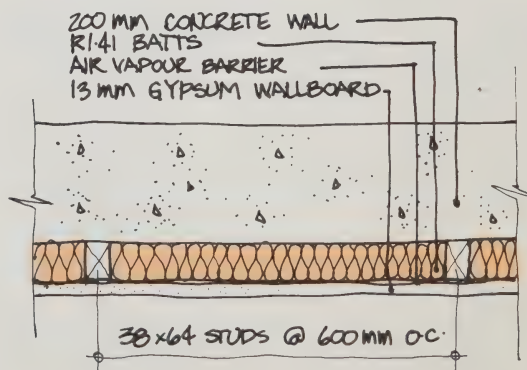 200 mm CONCRETE WALL
R1.41 BATTS
AIR VAPOUR BARRIER
13 mm GYPSUM WALLBOARD
38 x 64 STUDS @ 600 mm O.C.